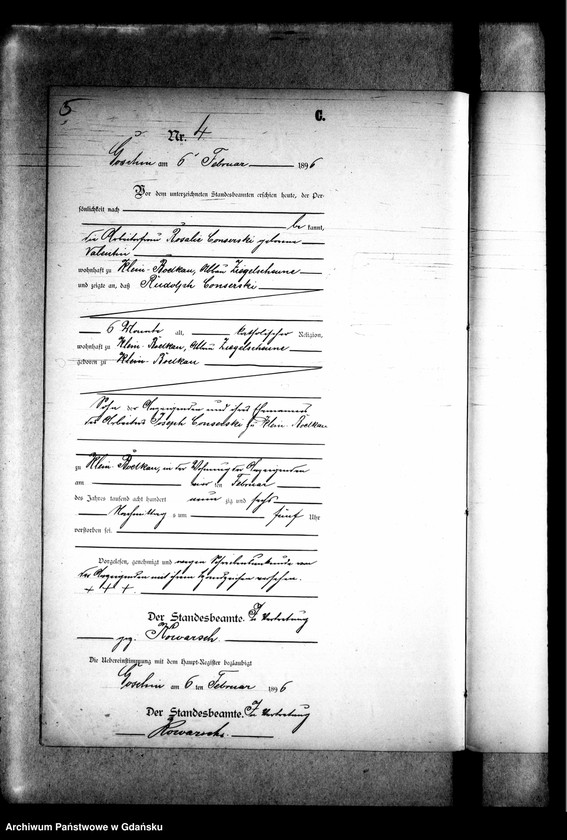 5
C.
Nr. 4
Goschin am 6 Februar 1896
Vor dem unterzeichneten Standesbeamten erschien heute, der Per-
sönlichkeit nach
be kannt,
die Arbeiterfrau Rosalie Conserski geborene
Valentin
wohnhaft zu Klein-Boelkau, Abbau Ziegelscheune
und zeigte an, daß Rudolph Conserski
6 Monate alt, katholischer Religion,
wohnhaft zu Klein-Boelkau, Abbau Ziegelscheune
geboren zu Klein-Boelkau
Sohn der Anzeigenden und ihres Ehemannes
des Arbeiters Joseph Conserski zu Klein-Boelkau
zu Klein Boelkau, in der Wohnung der Anzeigenden
am vier ten Februar
des Jahres tausend acht hundert neun zig und sechs
Nachmittags um fünf Uhr
verstorben sei.
Vorgelesen, genehmigt und wegen Schreibensunkunde von
der Anzeigenden mit ihrem Handzeichen versehen.
+ + +.
Der Standesbeamte. In Vertretung
gez. Kowarsch.
Die Uebereinstimmung mit dem Haupt-Register beglaubigt
Goschin am 6 ten Februar 1896
Der Standesbeamte. In Vertretung
Kowarsch.
Archiwum Państwowe w Gdańsku